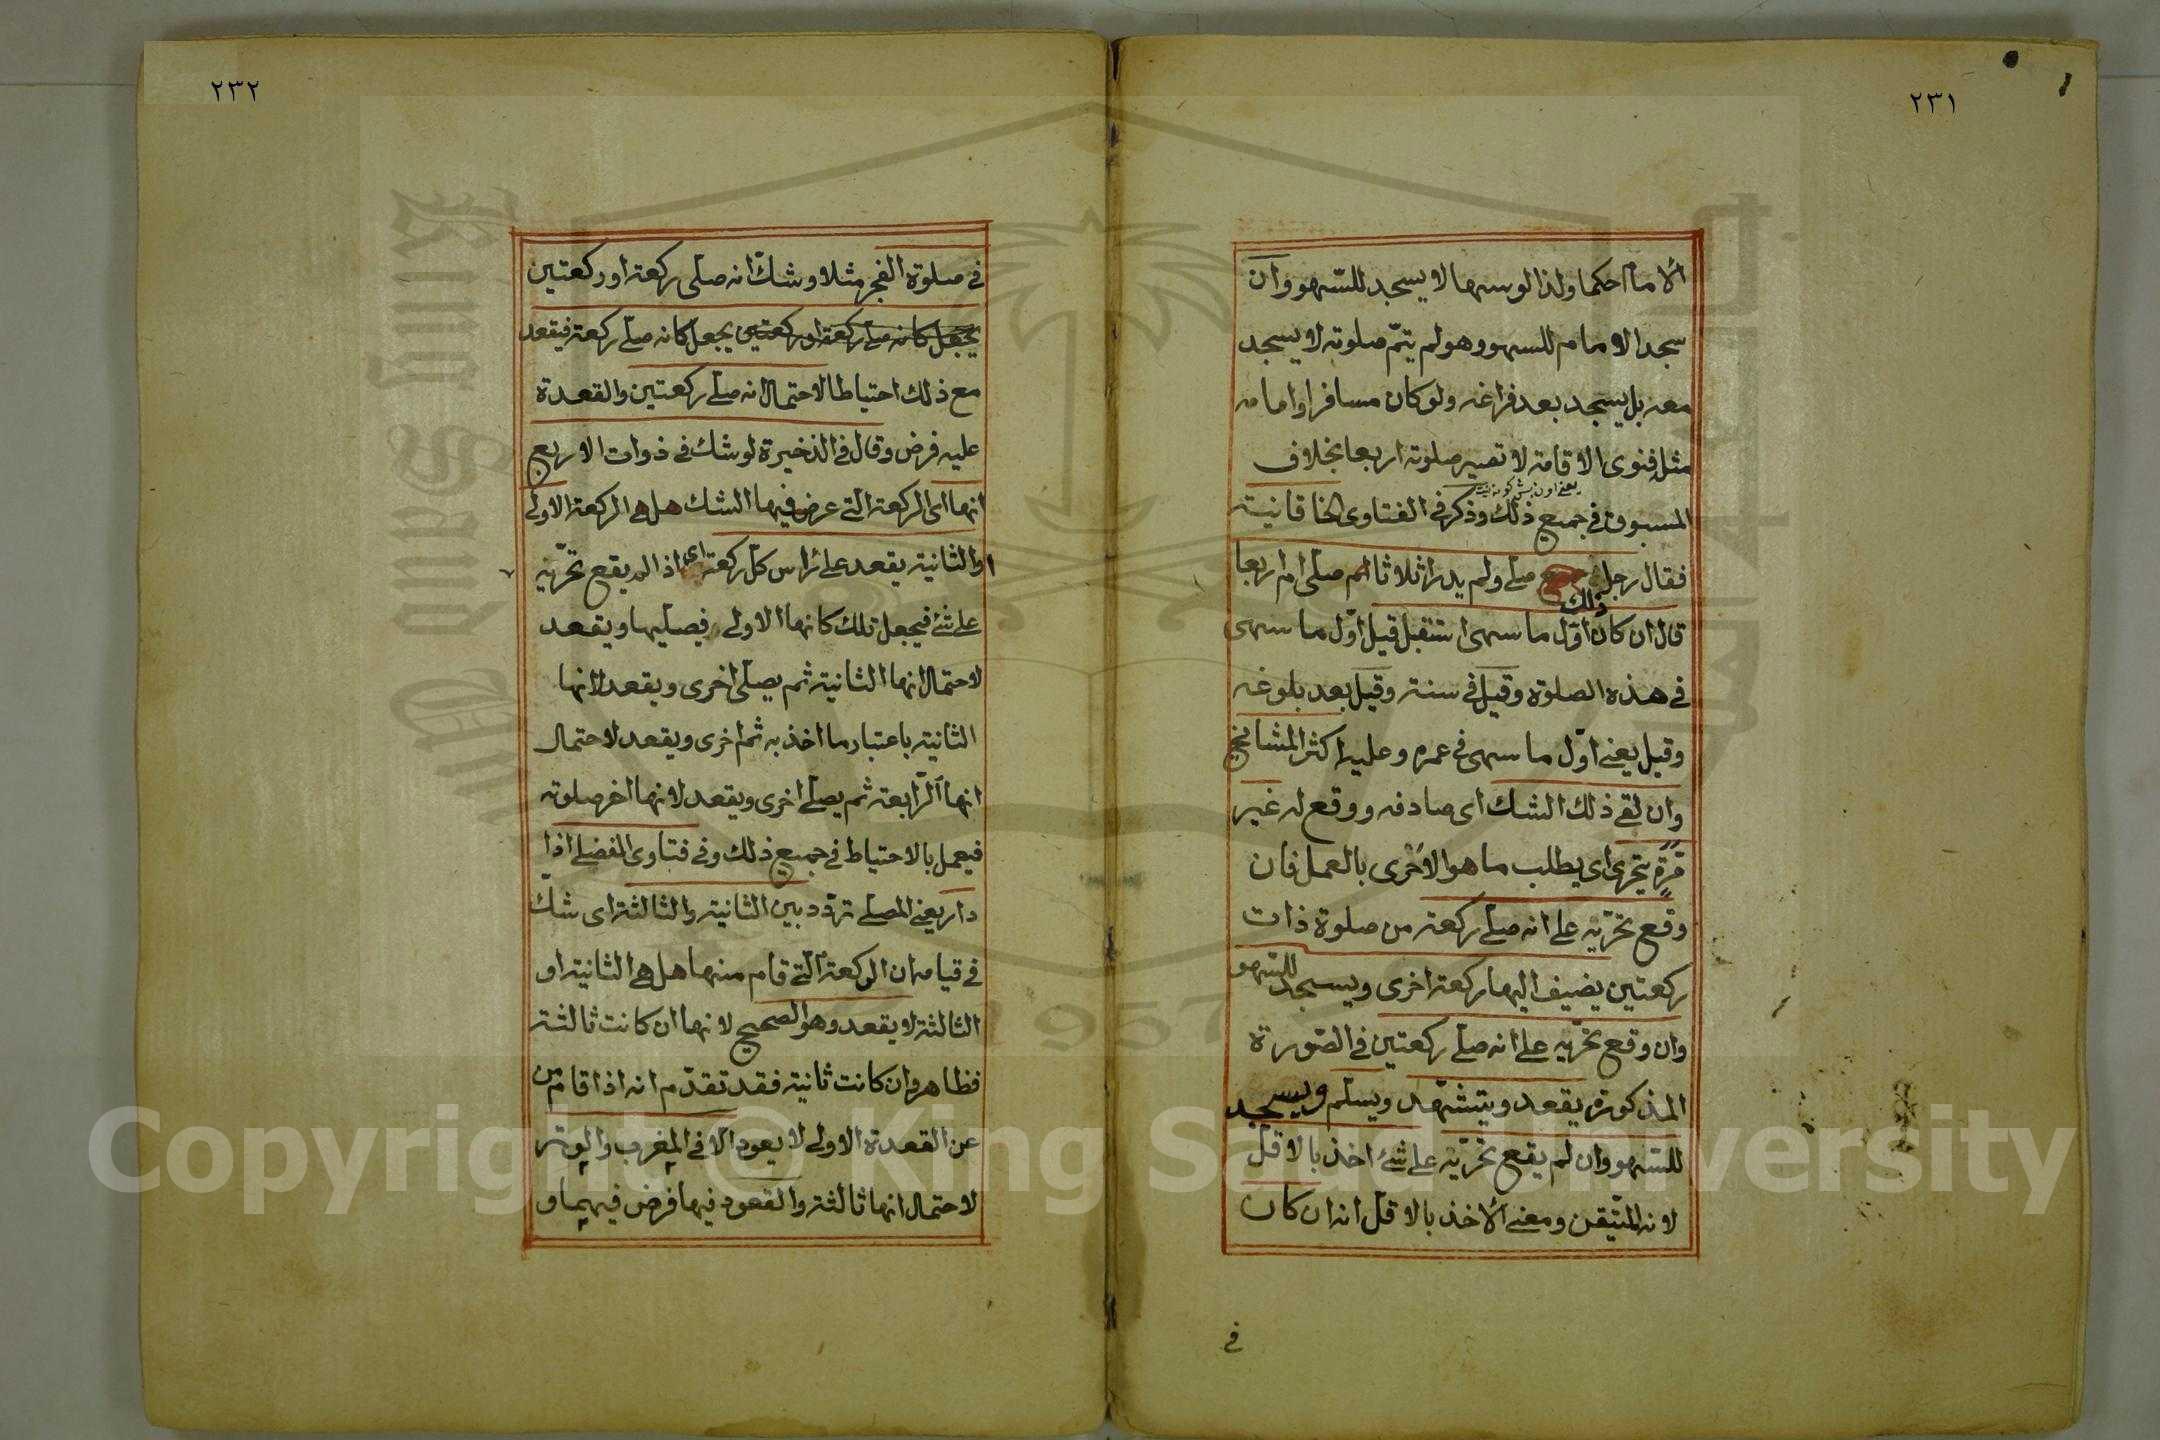 ٢٣١
الامام احكما ولذا لو سها لا يسجد للسّهو وان
سجد الامام للسهو وهو لم يتمّ صلوته لا يسجد
معه بل يسجد بعد فراغه ولو كان مسافرا وامامه
مثله فنوى الاقامة لا تصير صلوته اربعا بخلاف
المسبوق فى جميع ذلك وذكر فى الفتاوى الخاقانية
فقال رجل صلى ولم يدر اثلاثا ام صلى ام اربعا
ذلك
قال ان كان اوّل ما سهى استقبل قيل اوّل ما سهى
فى هذه الصلوة وقيل فى سنة وقيل بعد بلوغه
وقيل يعنى اوّل ما سهى فى عمره وعليه اكثر المشائخ
وان لقى ذلك الشك اى صادفه ووقع له غير
مرّة يتحرى اى يطلب ما هو الاحرى بالعمل فان
وقع تحرّيه على انه صلى ركعة من صلوة ذات
ركعتين يضيف اليها ركعة اخرى ويسجد للسّهو
وان وقع تحرّيه على انه صلى ركعتين فى الصّورة
المذكورة يقعد ويتشهّد ويسلّم ويسجد
للسّهو وان لم يقع تحرّيه على شئ اخذ بالاقلّ
لانه المتيقن ومعنى الاخذ بالاقلّ انه ان كان
فى
٢٣٢
فى صلوة الفجر مثلا وشكّ انه صلّى ركعة او ركعتين
يجعل كانه صلى ركعة او ركعتين يجعل كانه صلى ركعة فيقعد
مع ذلك احتياطا لاحتمال انه صلى ركعتين والقعدة
عليه فرض وقال فى الذخيرة لو شك فى ذوات الاربع
انها اى الركعة التى عرض فيها الشك هل هى الركعة الاولى
او الثانية يقعد على رأس كلّ ركعة اى اذا لم يقع تحرّيه
على شئ فيجعل تلك كانها الاولى فيصليها ويقعد
لاحتمال انها الثانية ثم يصلى اخرى ويقعد لانها
الثانية باعتبار ما اخذ به ثم اخرى ويقعد لاحتمال
انها الرّابعة ثم يصلى اخرى ويقعد لانها اخر صلوته
فيعمل بالاحتياط فى جميع ذلك وفى فتاوى الفضلى اذا
دار يعنى المصلى تردّد بين الثانية والثالثة اى شكّ
فى قيامه ان الركعة التى قام منها هل هى الثانية او
الثالثة لا يقعد وهو الصحيح لانها ان كانت ثالثة
فظاهر وان كانت ثانية فقد تقدّم انه اذا قام من
عن القعدة الاولى لا يعود الّا فى المغرب والوتر
لاحتمال انها ثالثة والقعود فيها فرض فيهما و
Copyright © King Saud University
1957